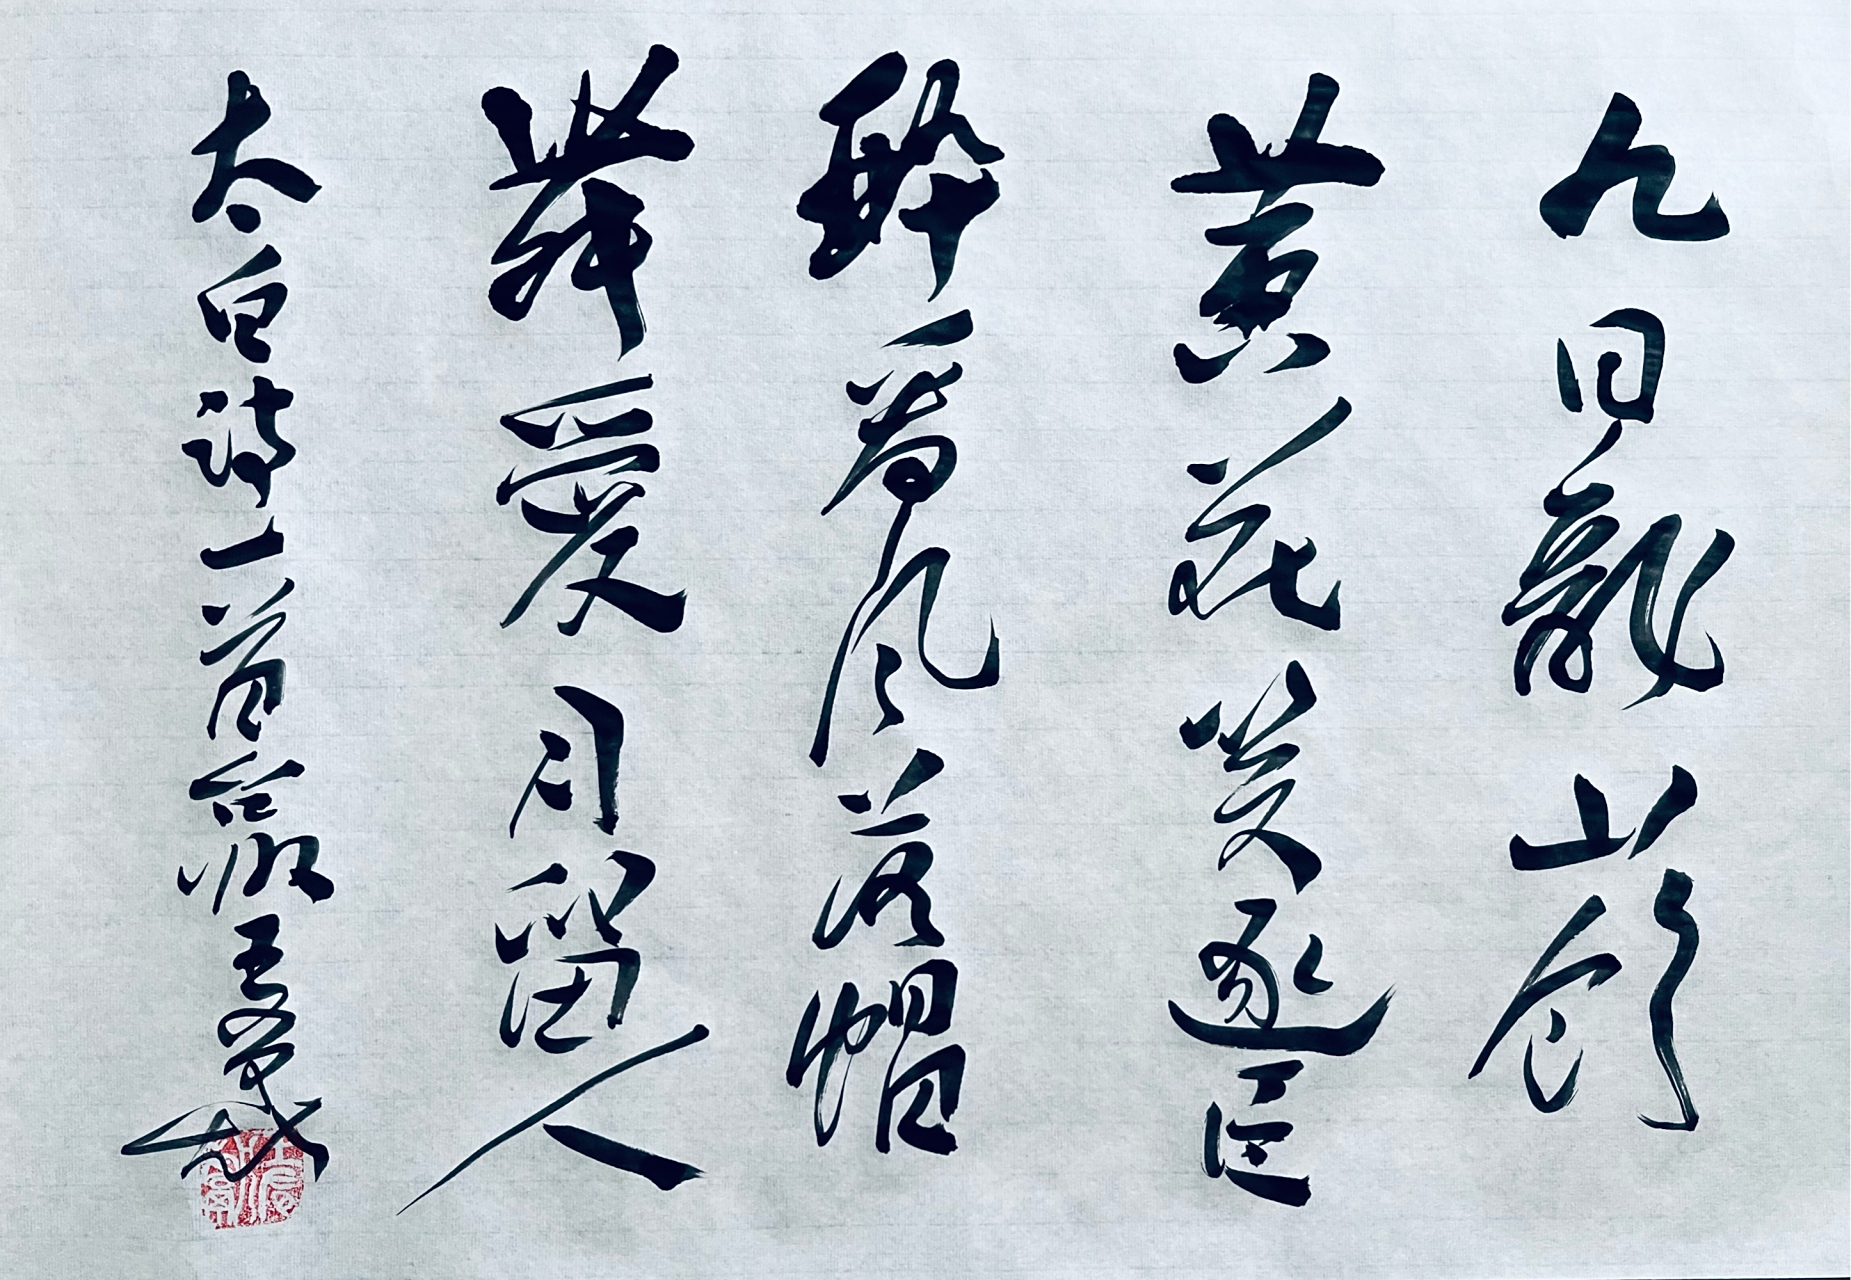 九日龍山飲
黄花笑逐臣
醉看風落帽
舞愛月留人
太白詩一首